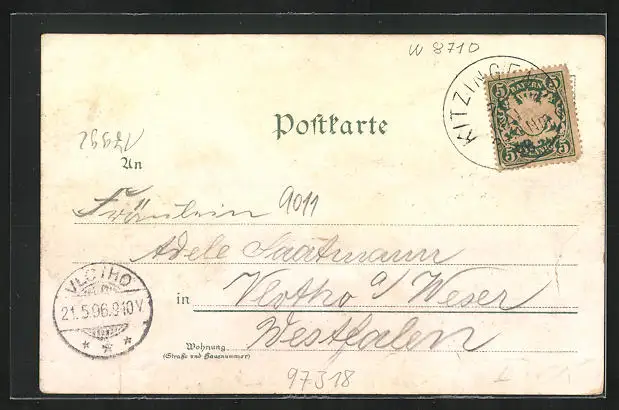 W 8710
KITZINGEN
5 BAYERN 5
5 5
Postkarte
17992
An
Fräulein 9011
Adele Saatmann
VLOTHO
21.5.96.9-10V.
in Vlotho a/ Weser
Westfalen
Wohnung
(Straße und Hausnummer)
97318